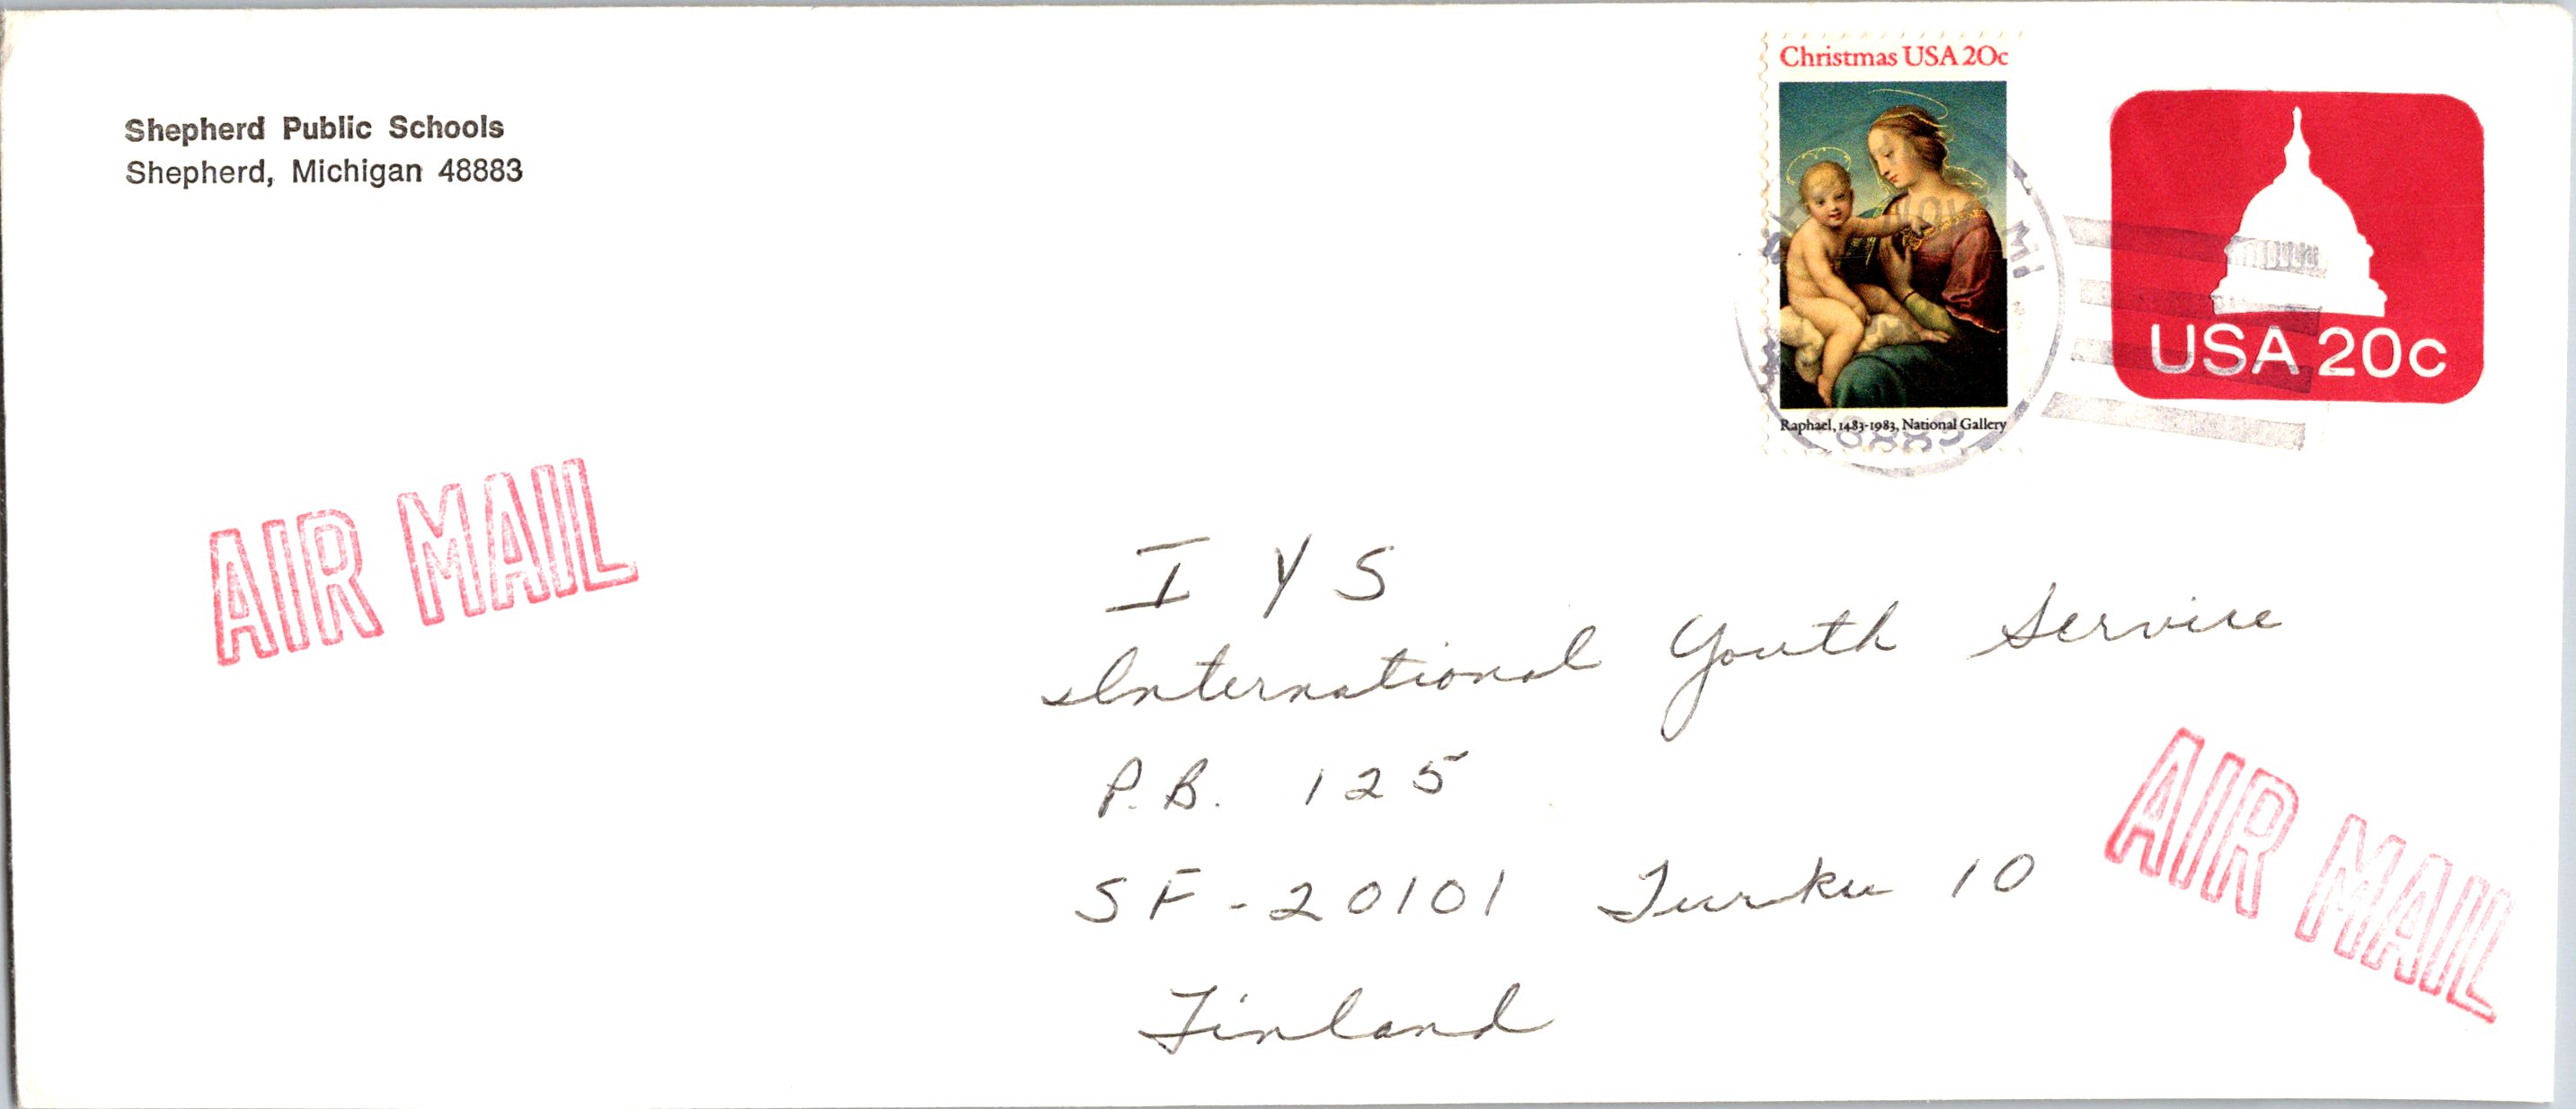 Shepherd Public Schools
Shepherd, Michigan 48883
Christmas USA 20c
Raphael, 1483-1983, National Gallery
MI
USA 20c
AIR MAIL
I Y S
International Youth Service
P.B. 125
SF-20101 Turku 10
Finland
AIR MAIL